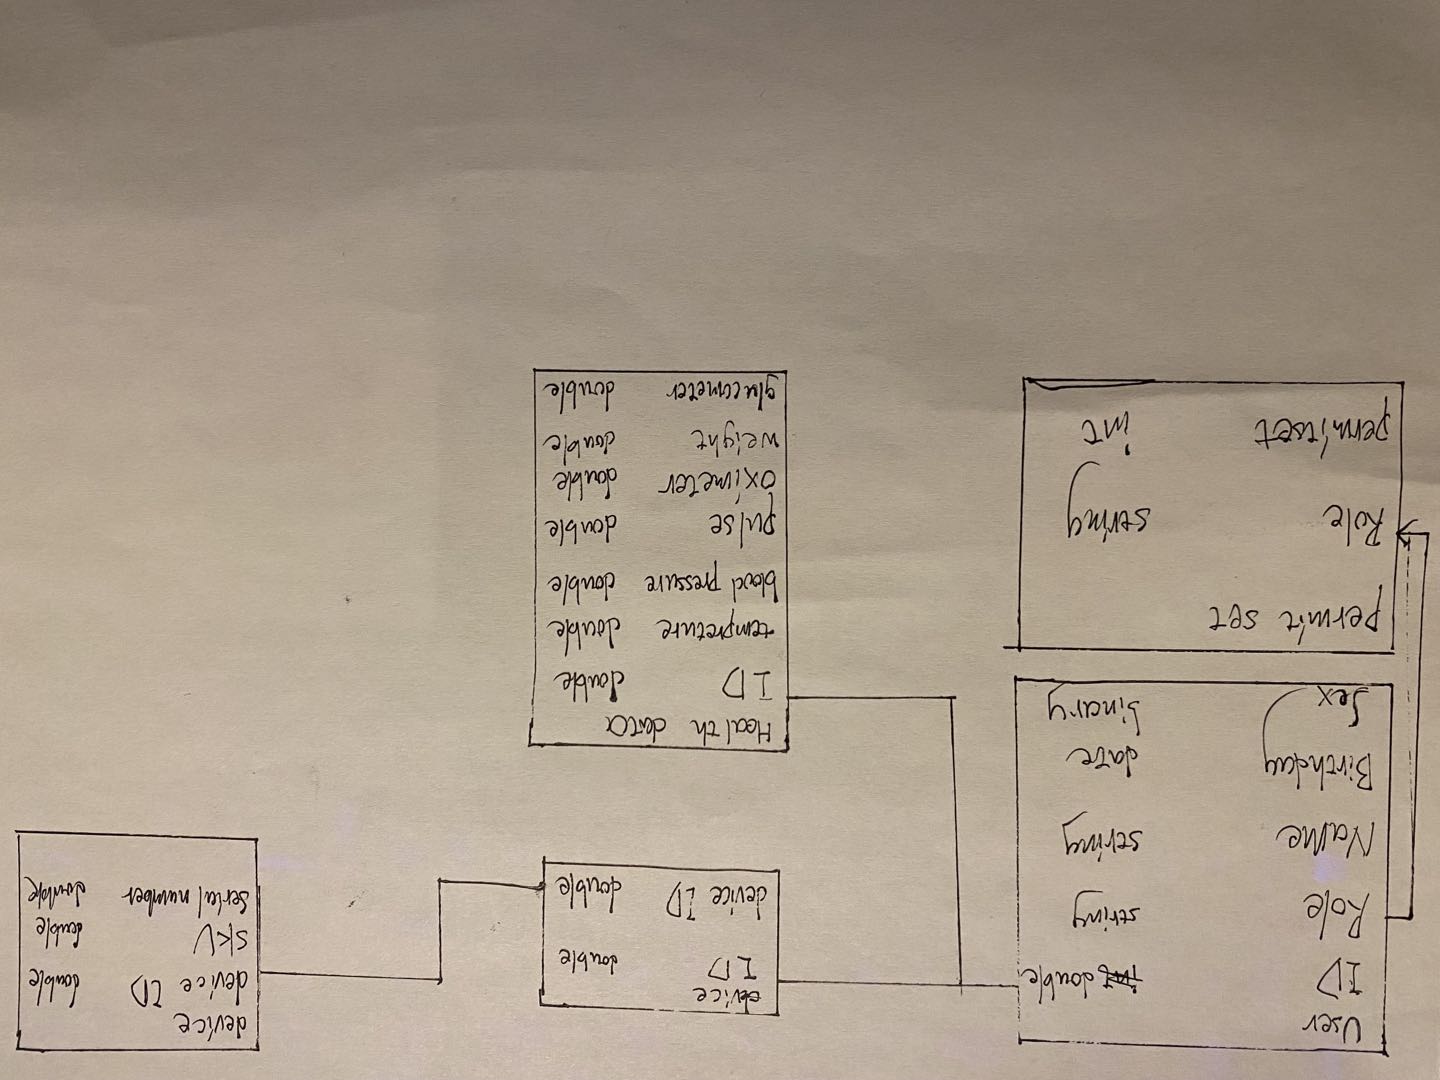 User
ID double
Role string
Name string
Birthday date
Sex binary
permit set
Role string
permitset int
device
ID double
device ID double
Health data
ID double
tempreture double
blood pressure double
pulse double
oximeter double
weight double
glucometer double
device
device ID double
SKU double
Serial number double